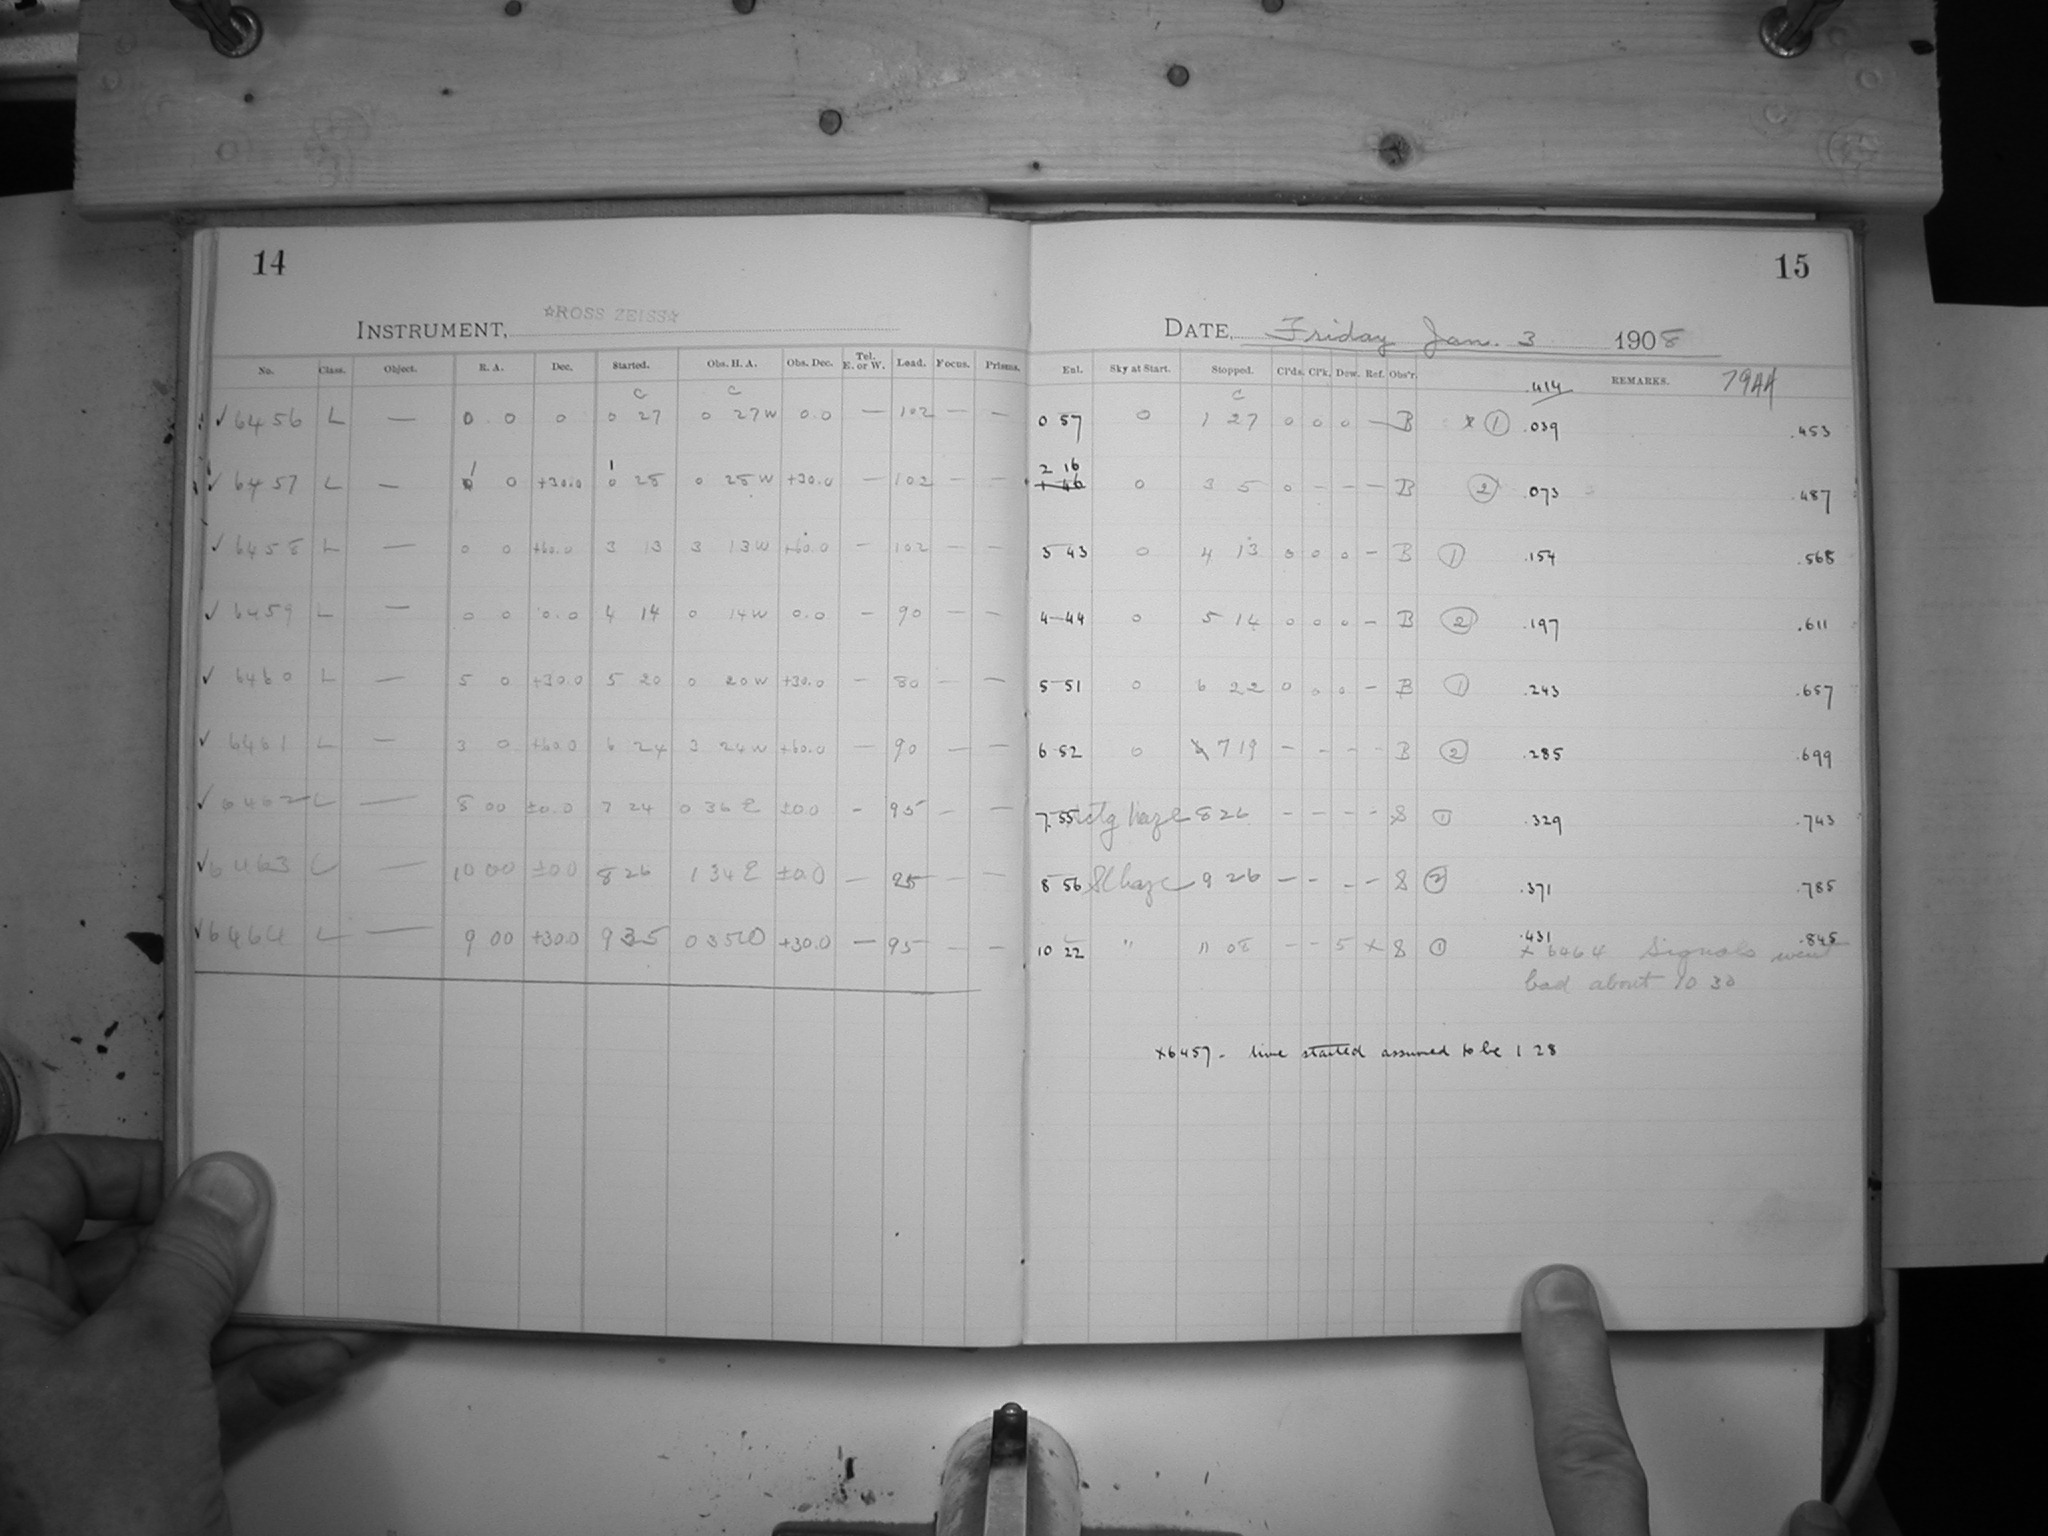 14
☆ROSS ZEISS☆
INSTRUMENT,
No. Class. Object. R. A. Dec. Started. Obs. H. A. Obs. Dec. Tel. E. or W. Load. Focus. Prisms.
C C
✓6456 L — 0 0 0 0 27 0 27W 0.0 — 102 — —
1 1
✓6457 L — 0 0 +30.0 0 28 0 28W +30.0 — 102 — —
✓6458 L — 0 0 +60.0 3 13 3 13W +60.0 — 102 — —
✓6459 L — 0 0 0.0 4 14 0 14W 0.0 — 90 — —
✓6460 L — 5 0 +30.0 5 20 0 20W +30.0 — 80 — —
✓6461 L — 3 0 +60.0 6 24 3 24W +60.0 — 90 — —
✓6462 L — 8 00 ±0.0 7 24 0 36 E ±0.0 — 95 — —
✓6463 L — 10 00 ±0.0 8 26 1 34 E ±0.0 — 95 — —
✓6464 L — 9 00 +30.0 9 35 0 35W +30.0 — 95 — —
15
DATE, Friday Jan. 3 1908
Ent. Sky at Start. Stopped. Cl'ds. Cl'k. Dew. Ref. Obs'r. .414 REMARKS. 79AA
C
0 57 0 1 27 0 0 0 — B x ① .039 .453
2 16
1 46 0 3 5 0 - - - B ② .073 .487
3 43 0 4 13 0 0 0 - B ① .154 .568
4 44 0 5 14 0 0 0 - B ② .197 .611
5 51 0 6 22 0 0 0 - B ① .243 .657
6 52 0 7 19 - - - - B ② .285 .699
7.55 haze 8 26 - - - - S ① .329 .743
8 56 Sl haze 9 26 - - - - S ② .371 .785
10 22 " 11 08 - - 5 x S ① .431 .845
x 6464 Signals went
bad about 10 30
x6457 - time started assumed to be 1 28